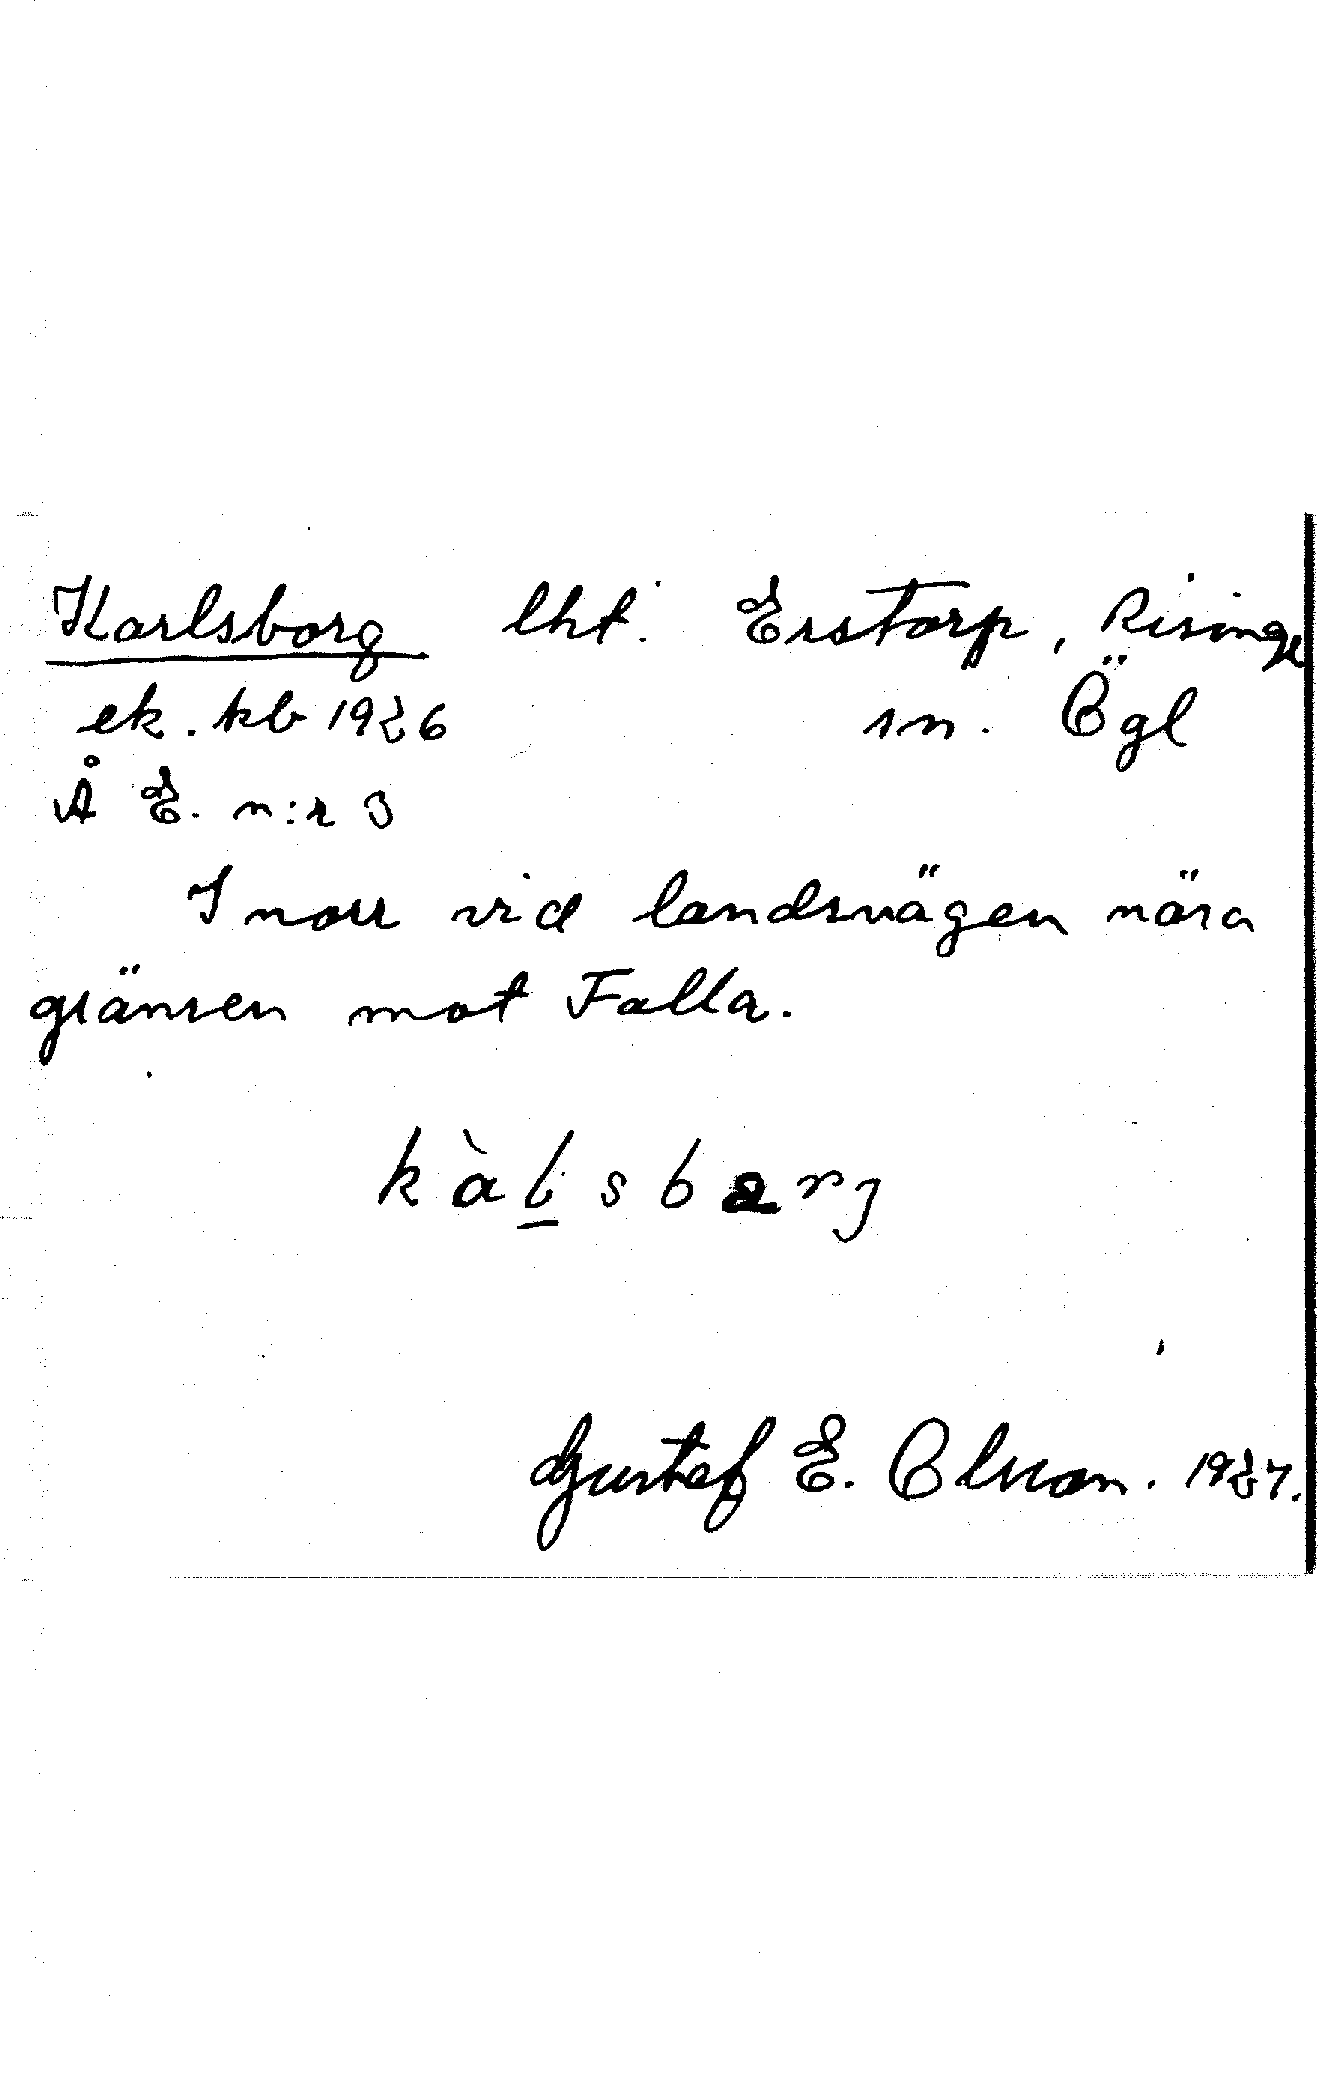 Karlsborg lht. Erstorp, Risinge
ek. kb 1926 sn. Ögl
Å E. n:r 3
I norr vid landsvägen nära
gränsen mot Falla.
kàḻsbarj
Gustaf E. Olsson. 1927.